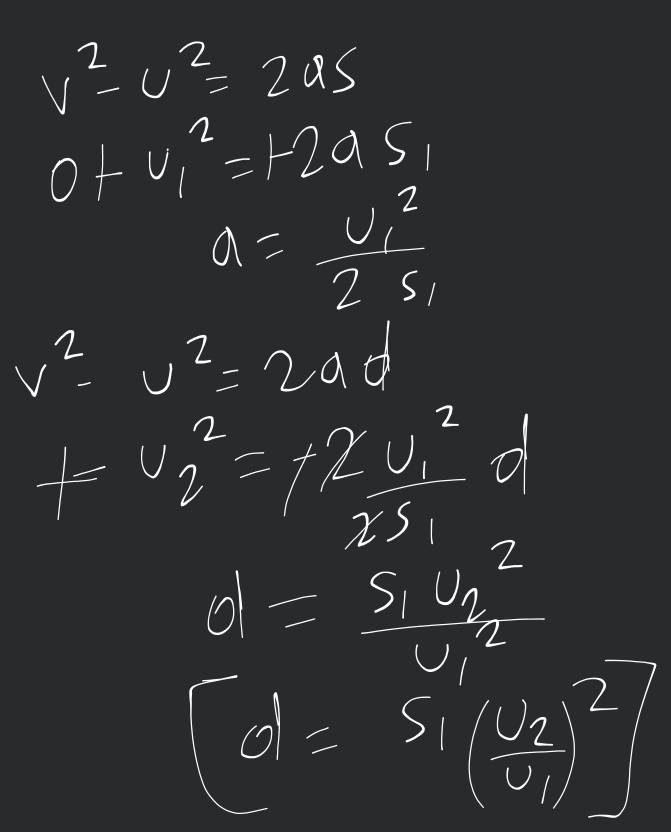 v² - u² = 2as
0 + u₁² = +2as₁
a = u₁² / 2s₁
v² - u² = 2ad
+ u₂² = +2 u₁² / 2s₁ d
d = s₁u₂² / u₁²
[d = s₁(u₂/u₁)²]